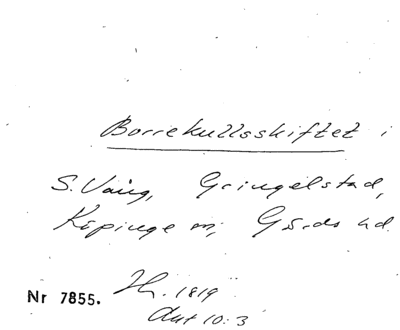 Borrekullsskiftet i
S. Vång, Gringelstad,
Köpinge m, Gärds hd.
Nr 7855. Hr. 1819
Aut 10:3